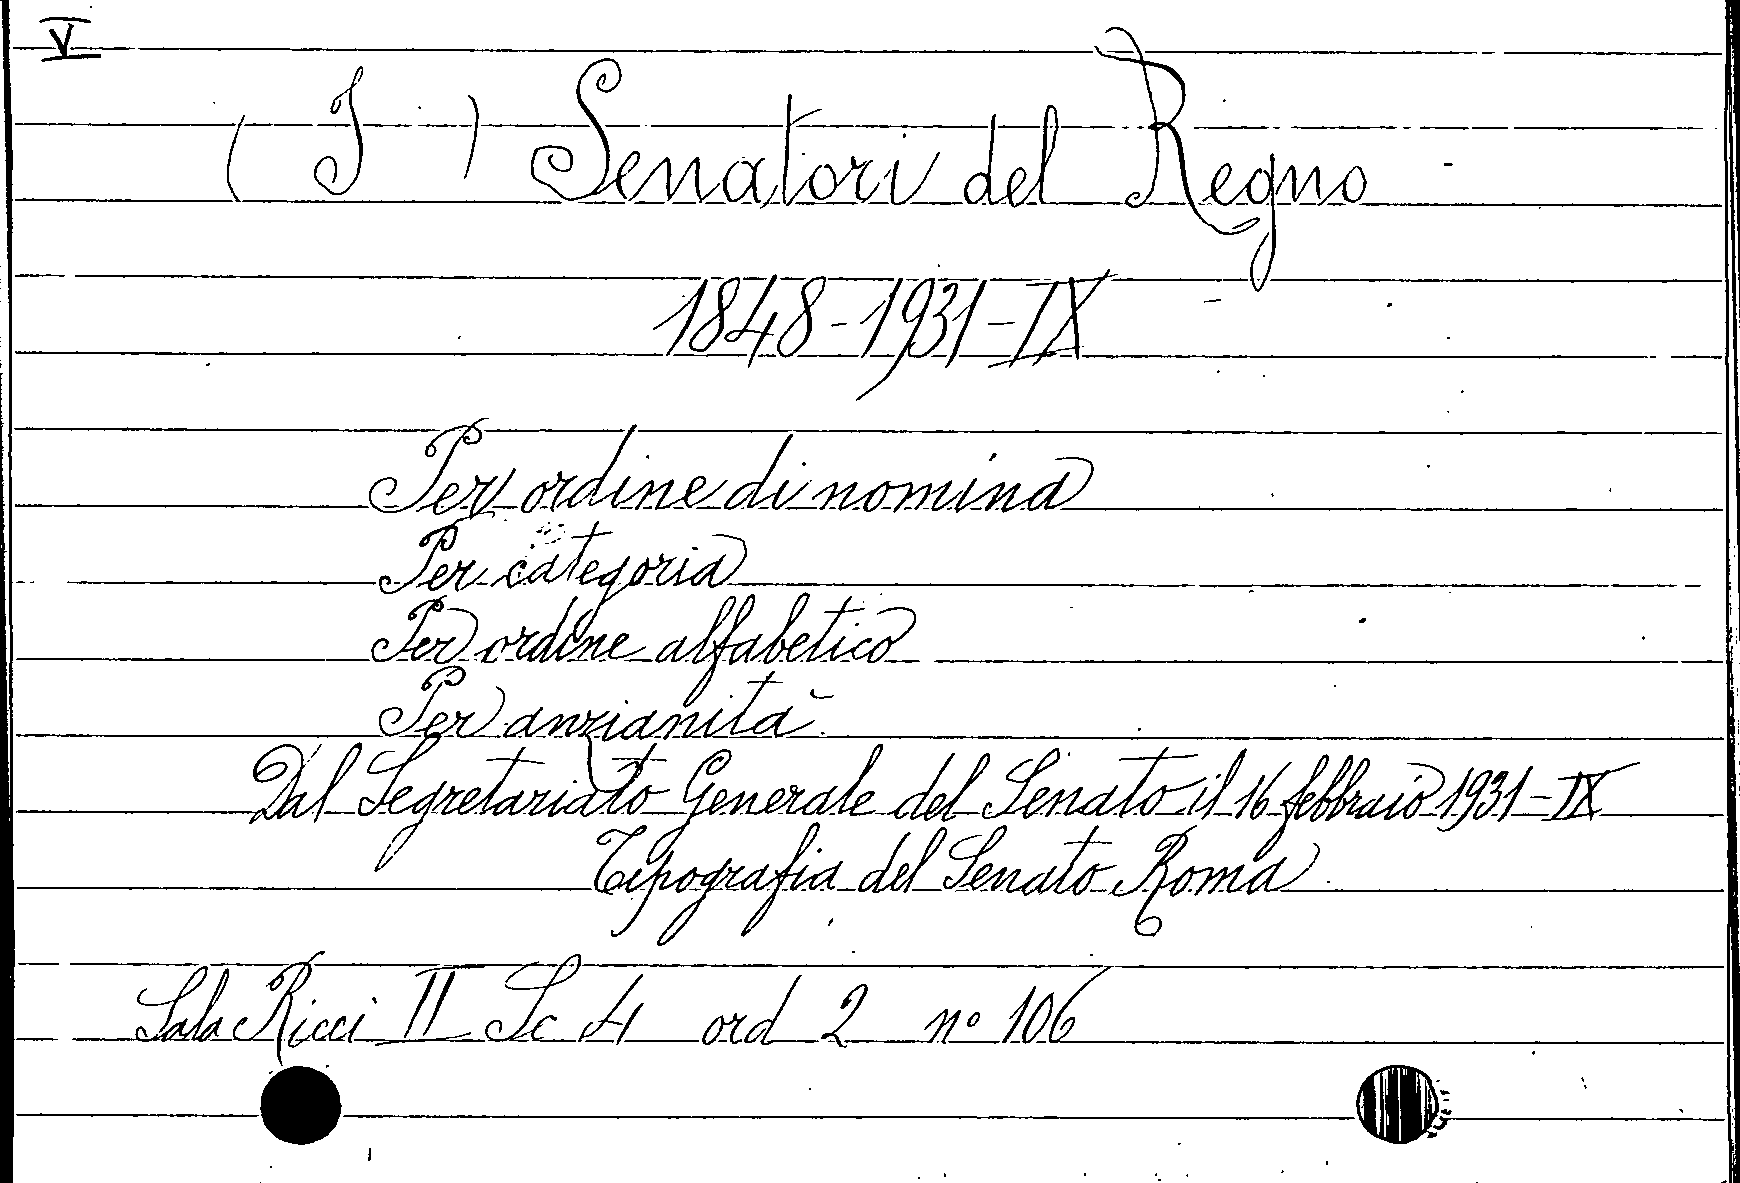 V
( I ) Senatori del Regno
1848-1931-IX
Per ordine di nomina
Per categoria
Per ordine alfabetico
Per anzianità
Dal Segretariato Generale del Senato il 16 febbraio 1931-IX
Tipografia del Senato Roma
Sala Ricci II Sc 4 ord 2 nº 106